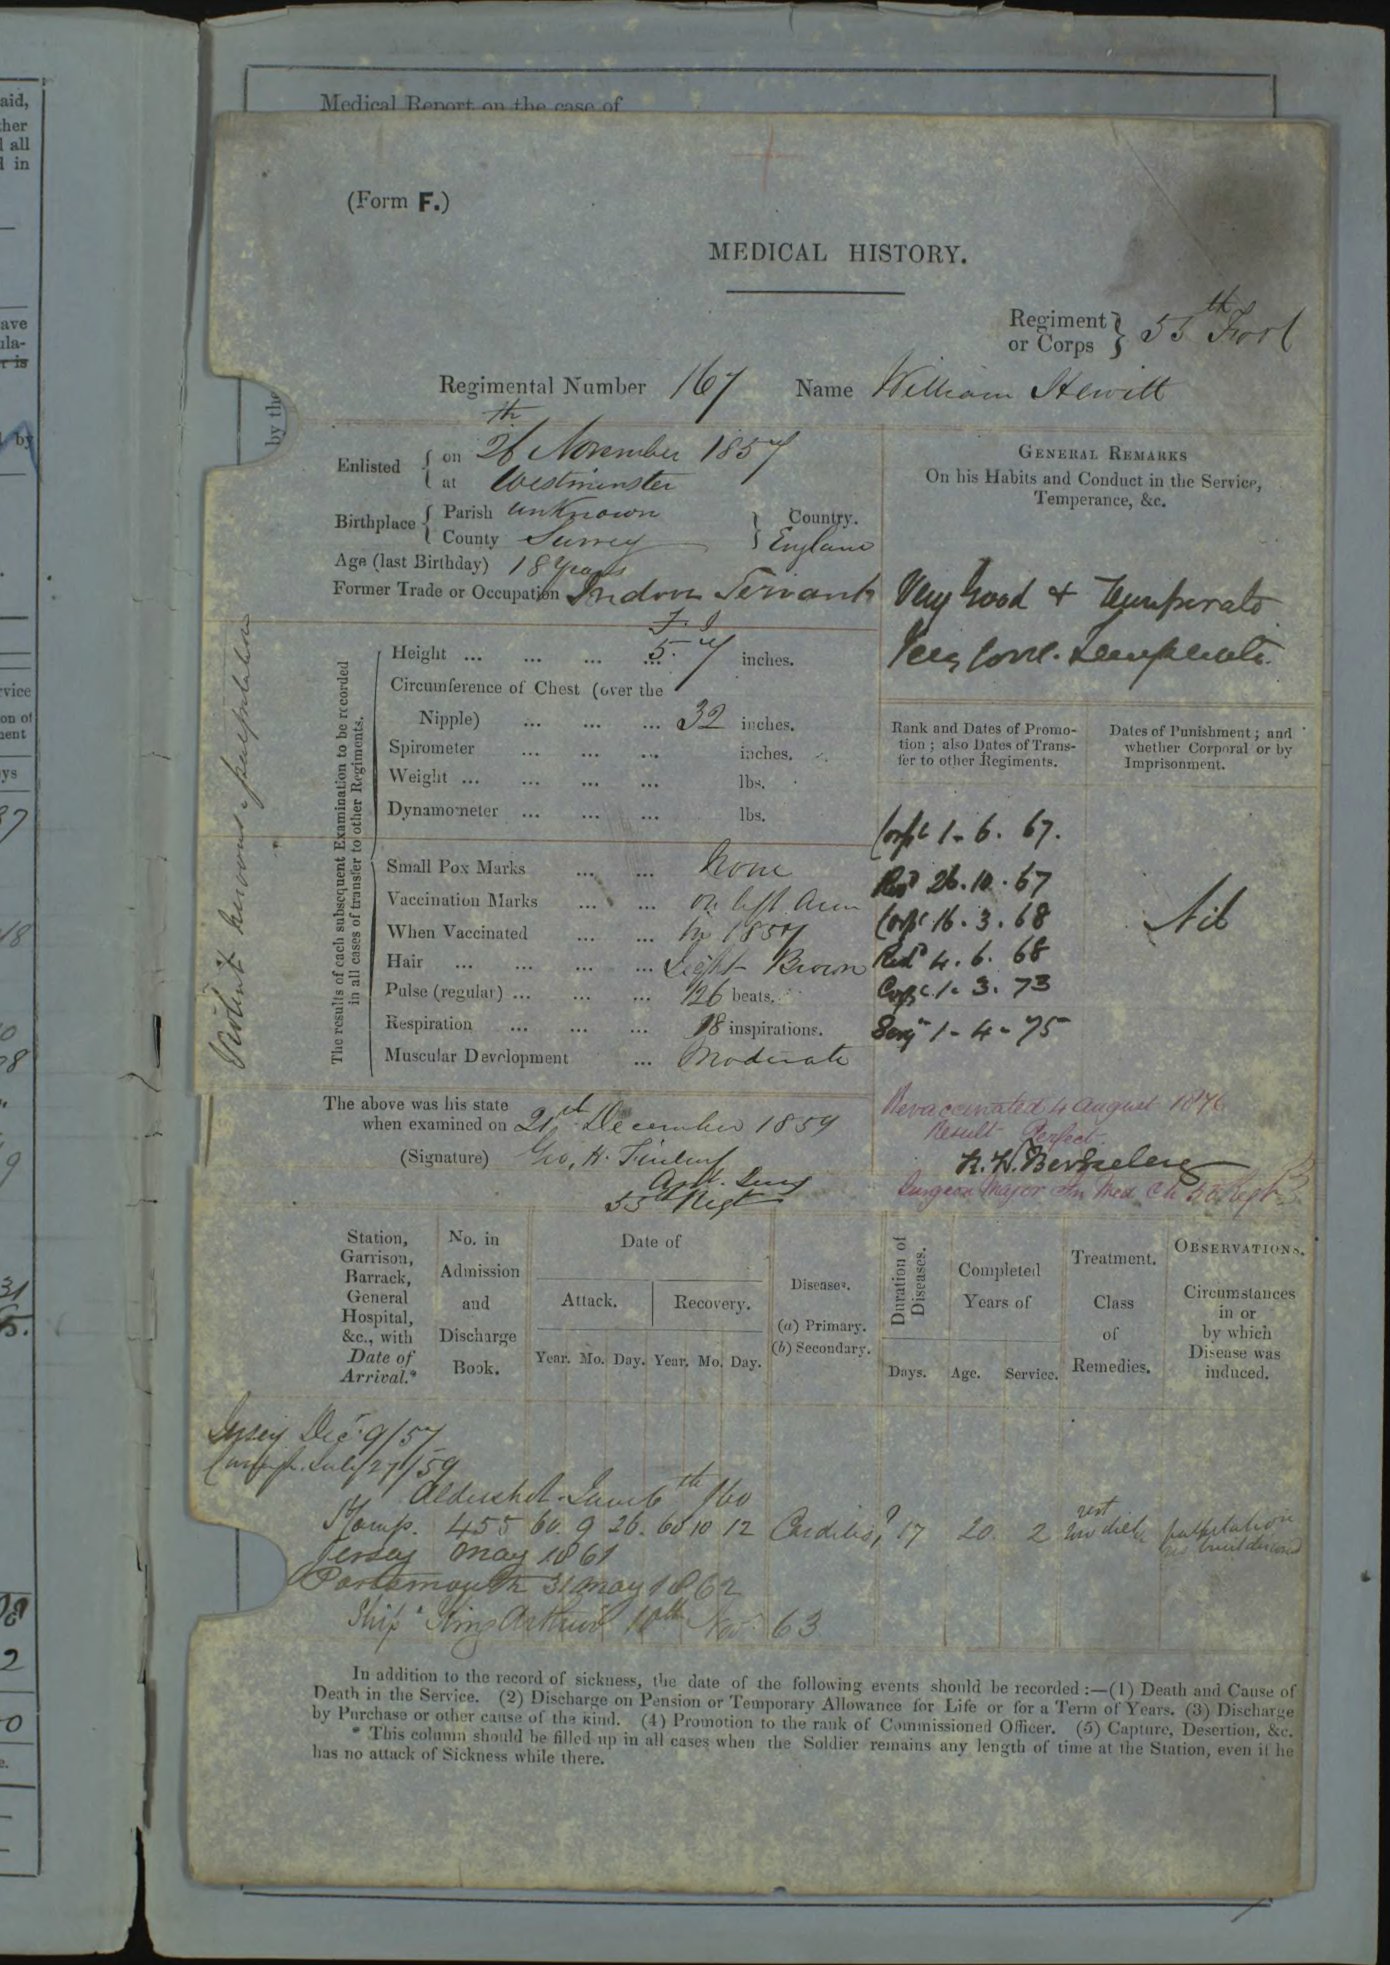 Medical Report on the case of
(Form F.)
MEDICAL HISTORY.
Regiment or Corps } 55th Foot
Regimental Number 167 Name William Hewitt
Enlisted { on 26th November 1857
at Westminster
Birthplace { Parish unknown
County Surrey } Country. England
Age (last Birthday) 18 years
Former Trade or Occupation Indoor Servant
GENERAL REMARKS
On his Habits and Conduct in the Service,
Temperance, &c.
Very Good & Temperate
Very Good. Temperate.
The results of each subsequent Examination to be recorded
in all cases of transfer to other Regiments.
Violent nervous palpitation
F. I
Height ... ... ... ... 5. 7 inches.
Circumference of Chest (over the
Nipple) ... ... ... 32 inches.
Spirometer ... ... ... inches.
Weight ... ... ... ... lbs.
Dynamometer ... ... ... lbs.
Small Pox Marks ... ... None
Vaccination Marks ... ... on left arm
When Vaccinated ... ... In 1857
Hair ... ... ... ... Light Brown
Pulse (regular) ... ... ... 126 beats.
Respiration ... ... ... 18 inspirations.
Muscular Development ... Moderate
Rank and Dates of Promo-
tion ; also Dates of Trans-
fer to other Regiments.
Corpl 1. 6. 67.
Red 26. 10. 67
Corpl 16. 3. 68
Red 4. 6. 68
Corpl 1. 3. 73
Serjt 1 - 4 - 75
Dates of Punishment ; and
whether Corporal or by
Imprisonment.
Nil
The above was his state
when examined on 21st December 1859
(Signature) Geo, H.
Asst. Surg
55th Regt
Revaccinated 4 August 1876
Result Perfect.
Surgeon Major In Med Ch Regt
Station,
Garrison,
Barrack,
General
Hospital,
&c., with
Date of
Arrival.*
No. in
Admission
and
Discharge
Book.
Date of
Attack. Recovery.
Year. Mo. Day. Year. Mo. Day.
Diseases.
(a) Primary.
(b) Secondary.
Duration of
Diseases.
Days.
Completed
Years of
Age. Service.
Treatment.
Class
of
Remedies.
OBSERVATIONS.
Circumstances
in or
by which
Disease was
induced.
Jersey Dec. 9/57
Curragh. July 27/59
Aldershot. June 6th /60
455 60. 9 26. 60 10 12 Carditis? 17 20. 2 rest palpitation
Jersey May 1861
Portsmouth 31 May 1862
Ship "King Arthur" 10th Nov 63
In addition to the record of sickness, the date of the following events should be recorded :—(1) Death and Cause of
Death in the Service. (2) Discharge on Pension or Temporary Allowance for Life or for a Term of Years. (3) Discharge
by Purchase or other cause of the kind. (4) Promotion to the rank of Commissioned Officer. (5) Capture, Desertion, &c.
* This column should be filled up in all cases when the Soldier remains any length of time at the Station, even if he
has no attack of Sickness while there.